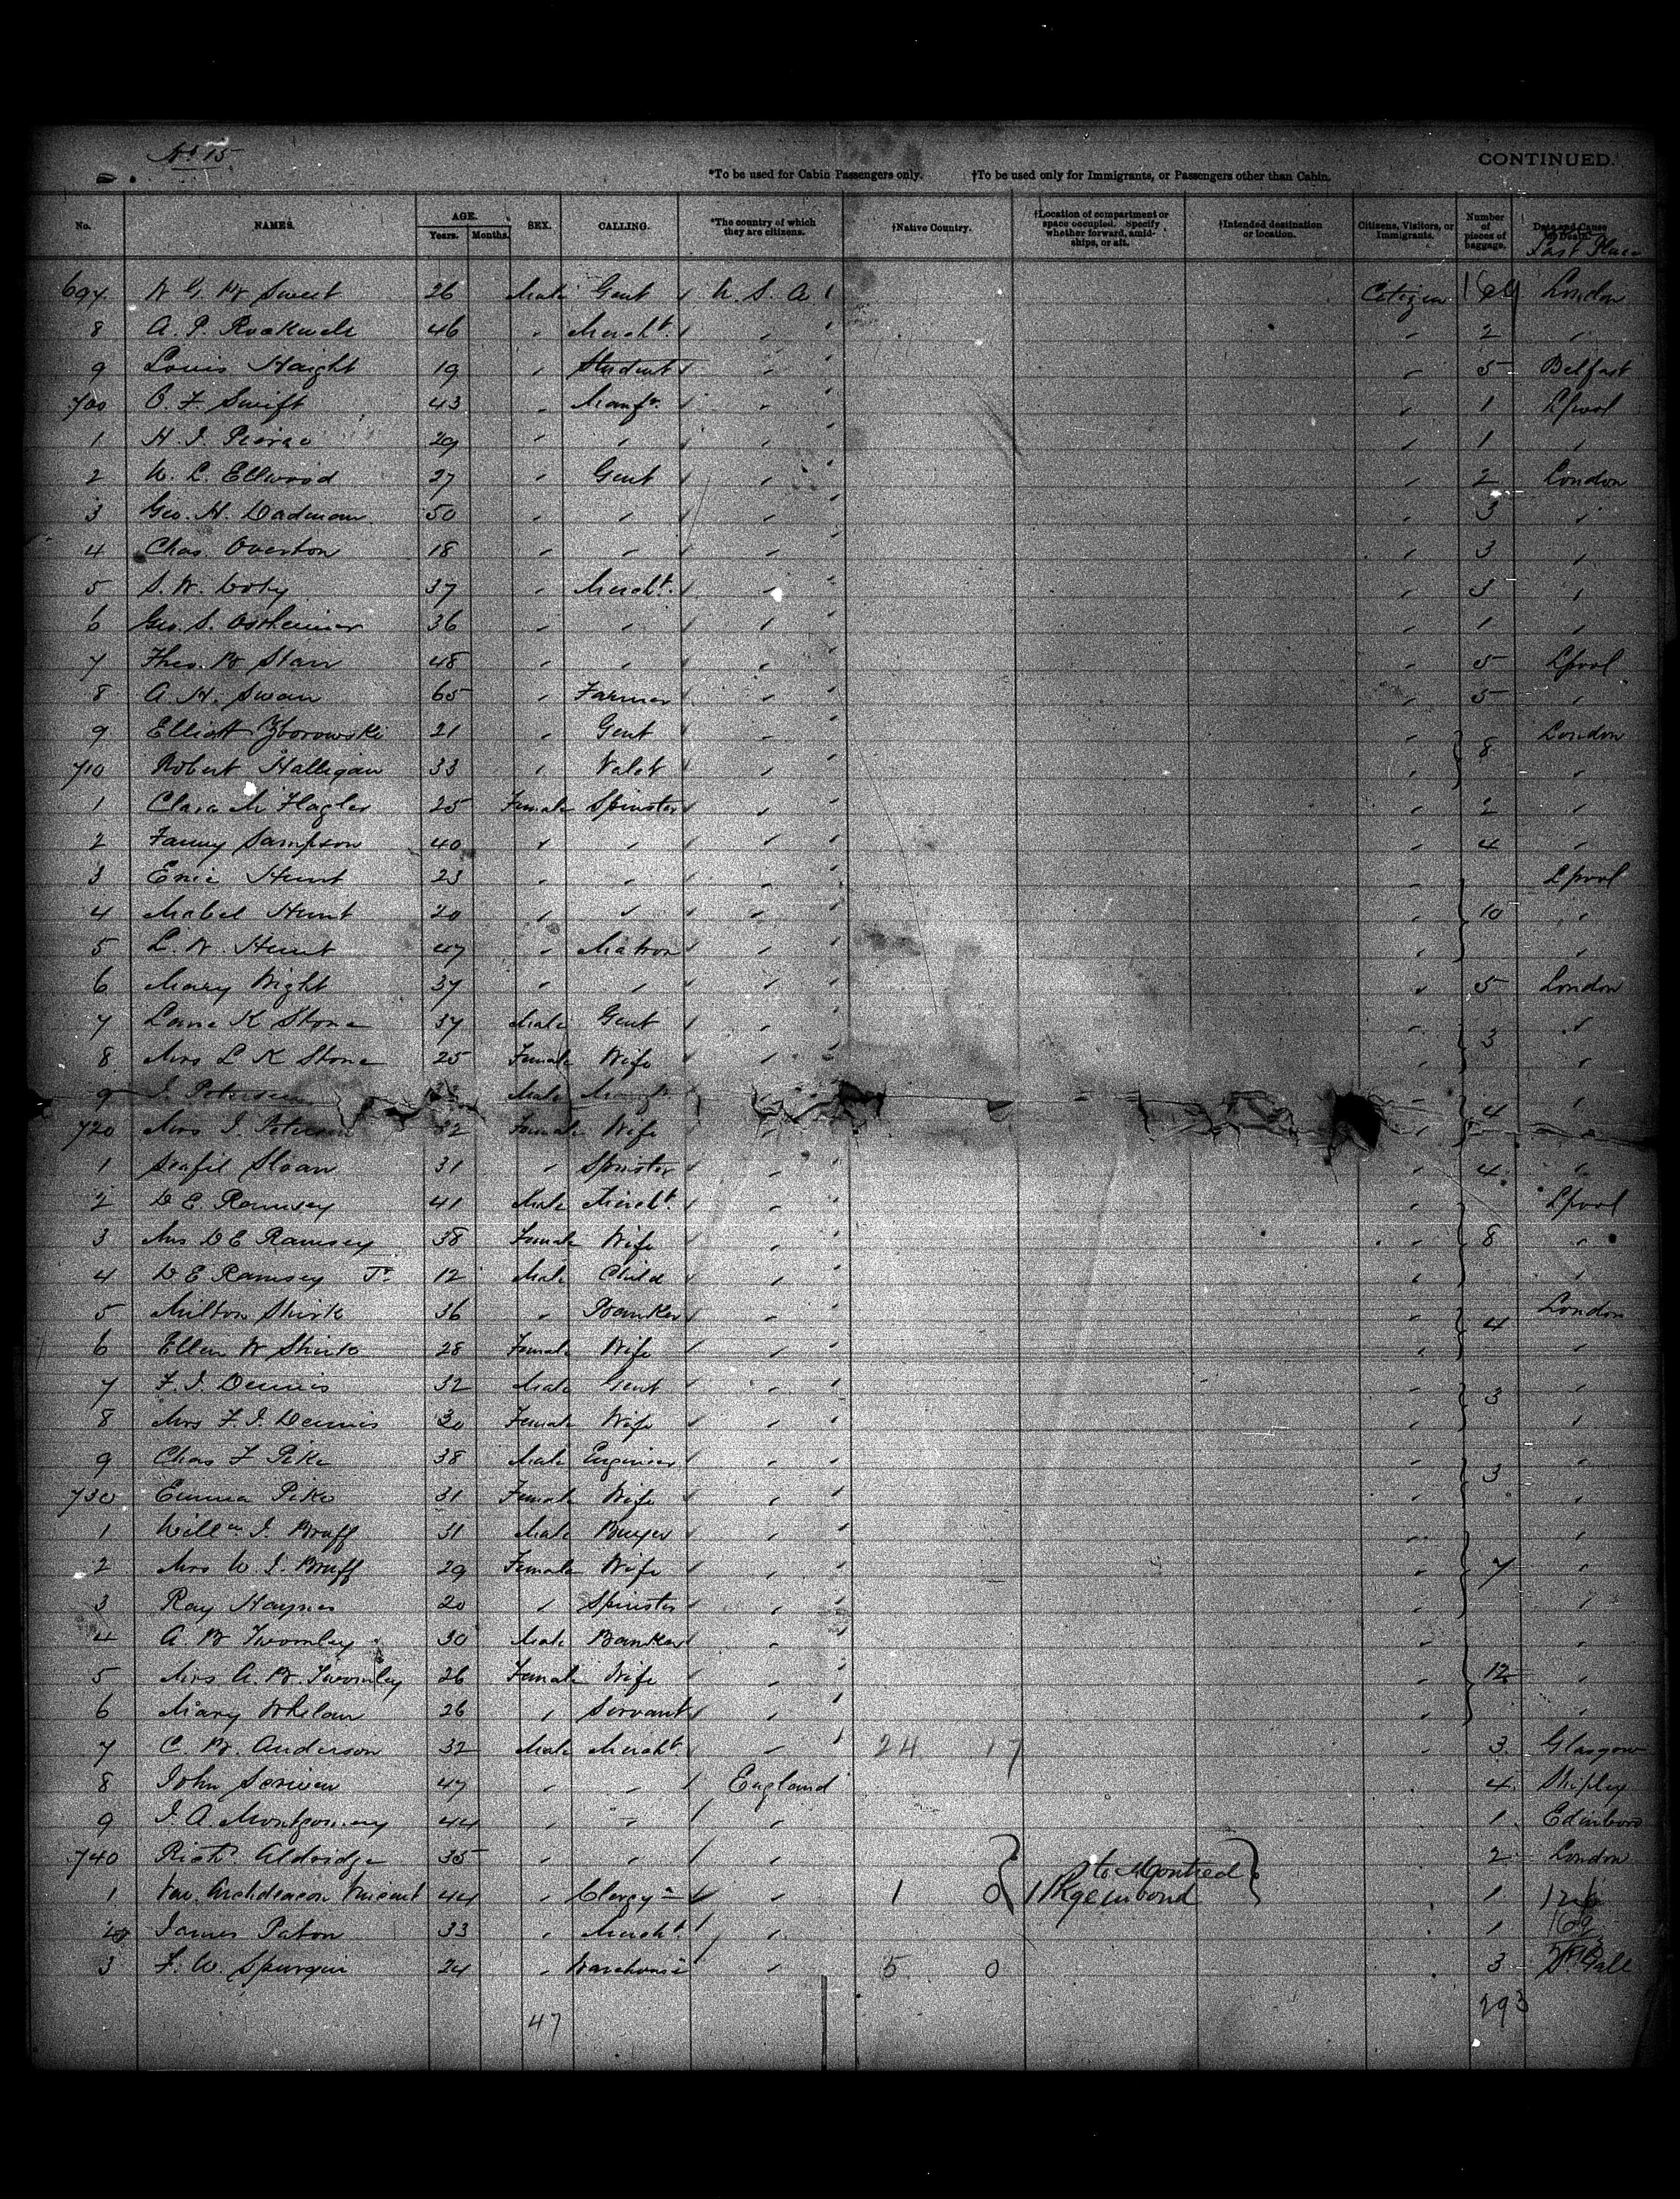 No 15
CONTINUED.
*To be used for Cabin Passengers only. †To be used only for Immigrants, or Passengers other than Cabin.
No. NAMES. AGE. Years. Months. SEX. CALLING. *The country of which they are citizens. †Native Country. †Location of compartment or space occupied. Specify whether forward, amidships, or aft. †Intended destination or location. Citizens, Visitors, or Immigrants. Number of pieces of baggage. Date and Cause of Death. Last Place
697 W G W Sweet 26 Male Gent U. S. A Citizen London
8 A. P. Rockwell 46 " Mercht. " " 2 "
9 Louis Haight 19 " Student " " 5 Belfast
700 O. F. Swift 43 " Manfr. " " 1 Lpool
1 H. I. Peirce 29 " " " " 1 "
2 W. L. Ellwood 27 " Gent " " 2 London
3 Geo. H. Dadman 50 " " " " 3 "
4 Chas. Overton 18 " " " " 3 "
5 S. W. 37 " Mercht. " " 3 "
6 Geo. S. 36 " " " " 1 "
7 Theo. B Starr 48 " " " " 5 Lpool
8 A. H. Swan 65 " Farmer " " 5 "
9 Elliott Zborowski 21 " Gent " " 8 London
710 Robert Halligan 33 " Valet " " "
1 Clara M Flagler 25 Female Spinster " " 2 "
2 Fanny Sampson 40 " " " " 4 "
3 Enie Hunt 23 " " " " Lpool
4 Mabel Hunt 20 " " " " 10 "
5 L. W. Hunt 47 " Matron " " "
6 Mary Wight 37 " " " " 5 London
7 K Stone 37 Male Gent " " 3 "
8 Mrs L K Stone 25 Female Wife " " "
9 I. Petersen Male " " 4 "
720 Mrs I. Petersen 32 Female Wife " " "
1 Sloan 31 " Spinster " " 4 "
2 D E. Ramsey 41 Male Mercht. " " Lpool
3 Mrs D E Ramsey 38 Female Wife " " 8 "
4 D E Ramsey Jr 12 Male Child " " "
5 Milton Shirk 36 " Banker " " 4 London
6 Ellen W Shirk 28 Female Wife " " "
7 F. I. Dennis 32 Male Gent " " 3 "
8 Mrs F. I. Dennis 30 Female Wife " " "
9 Chas F Pike 38 Male Engineer " " 3 "
730 Emma Pike 31 Female Wife " " "
1 Willm I. Bruff 31 Male Buyer " " "
2 Mrs W. I. Bruff 29 Female Wife " " 7 "
3 Ray Haynes 20 " Spinster " " "
4 A. B Twombly 30 Male Banker " " "
5 Mrs A. B. Twombly 26 Female Wife " " 12 "
6 Mary Whelan 26 " Servant " " "
7 C. B. Anderson 32 Male Mercht. " 24 17 " 3 Glasgow
8 John Scriven 47 " " England 4 Shipley
9 I. A. Montgomery 44 " " " 1 Edinboro
740 Richd. Aldridge 35 " " " 2 London
1 Ven. Archdeacon Vincent 44 " Clergyn " 1 0 { 1 Pkge in bond to Montreal } 1
2 James Paton 33 " Mercht. " 1
3 F. W. Spurgin 24 " " 5 0 3 St. Gall
47 293